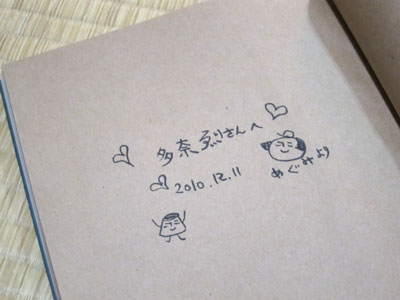 多奈さんへ
2010.12.11
めぐみより